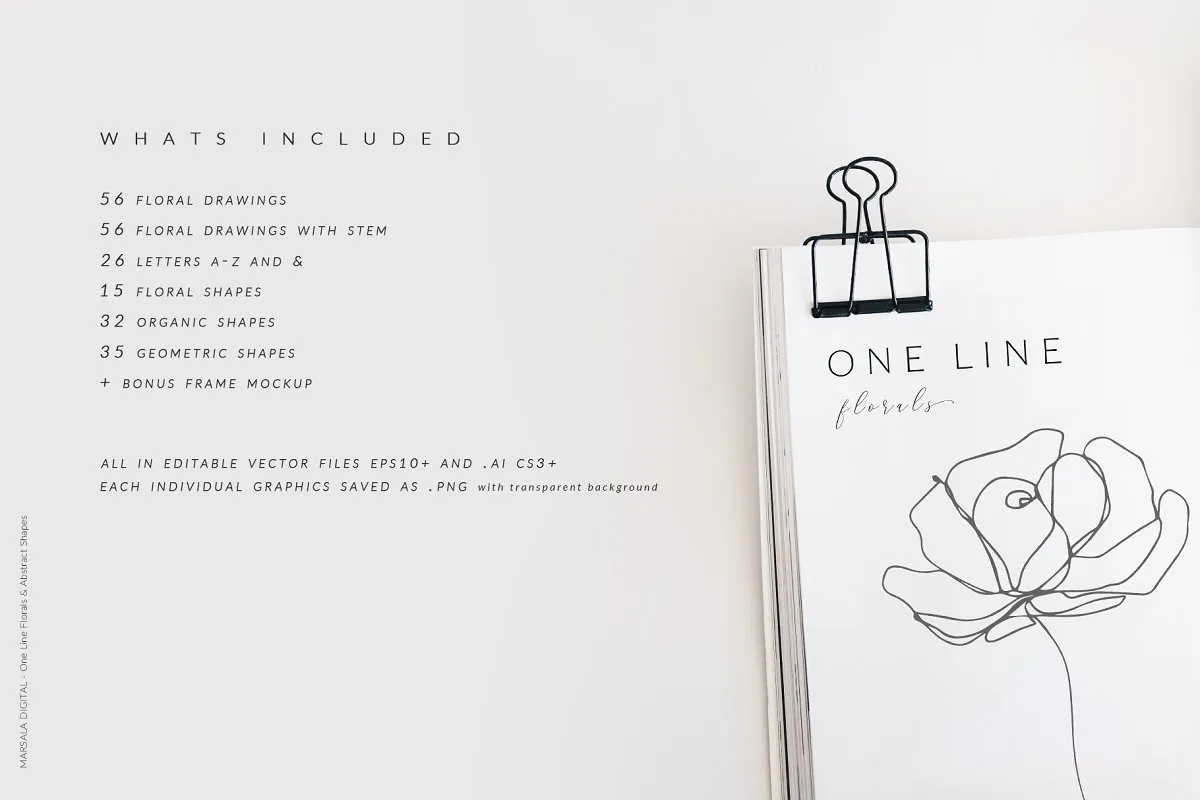 WHATS INCLUDED
56 FLORAL DRAWINGS
56 FLORAL DRAWINGS WITH STEM
26 LETTERS A-Z AND &
15 FLORAL SHAPES
32 ORGANIC SHAPES
35 GEOMETRIC SHAPES
+ BONUS FRAME MOCKUP
ALL IN EDITABLE VECTOR FILES EPS10+ AND .AI CS3+
EACH INDIVIDUAL GRAPHICS SAVED AS .PNG with transparent background
MARSALA DIGITAL - One Line Florals & Abstract Shapes
ONE LINE
florals